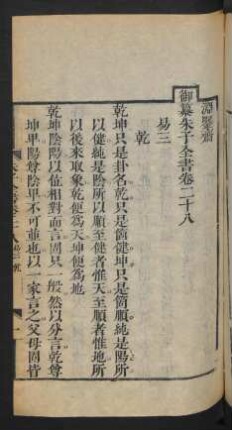 淵鑒齋
御纂朱子全書卷二十八
易三
乾
乾坤只是卦名乾只是箇健坤只是箇順純是陽所
以健純是陰所以順至健者惟天至順者惟地所
以後來取象乾便為天坤便為地
乾坤陰陽以位相對而言固只一般然以分言乾尊
坤卑陽尊陰卑不可並也以一家言之父母固皆